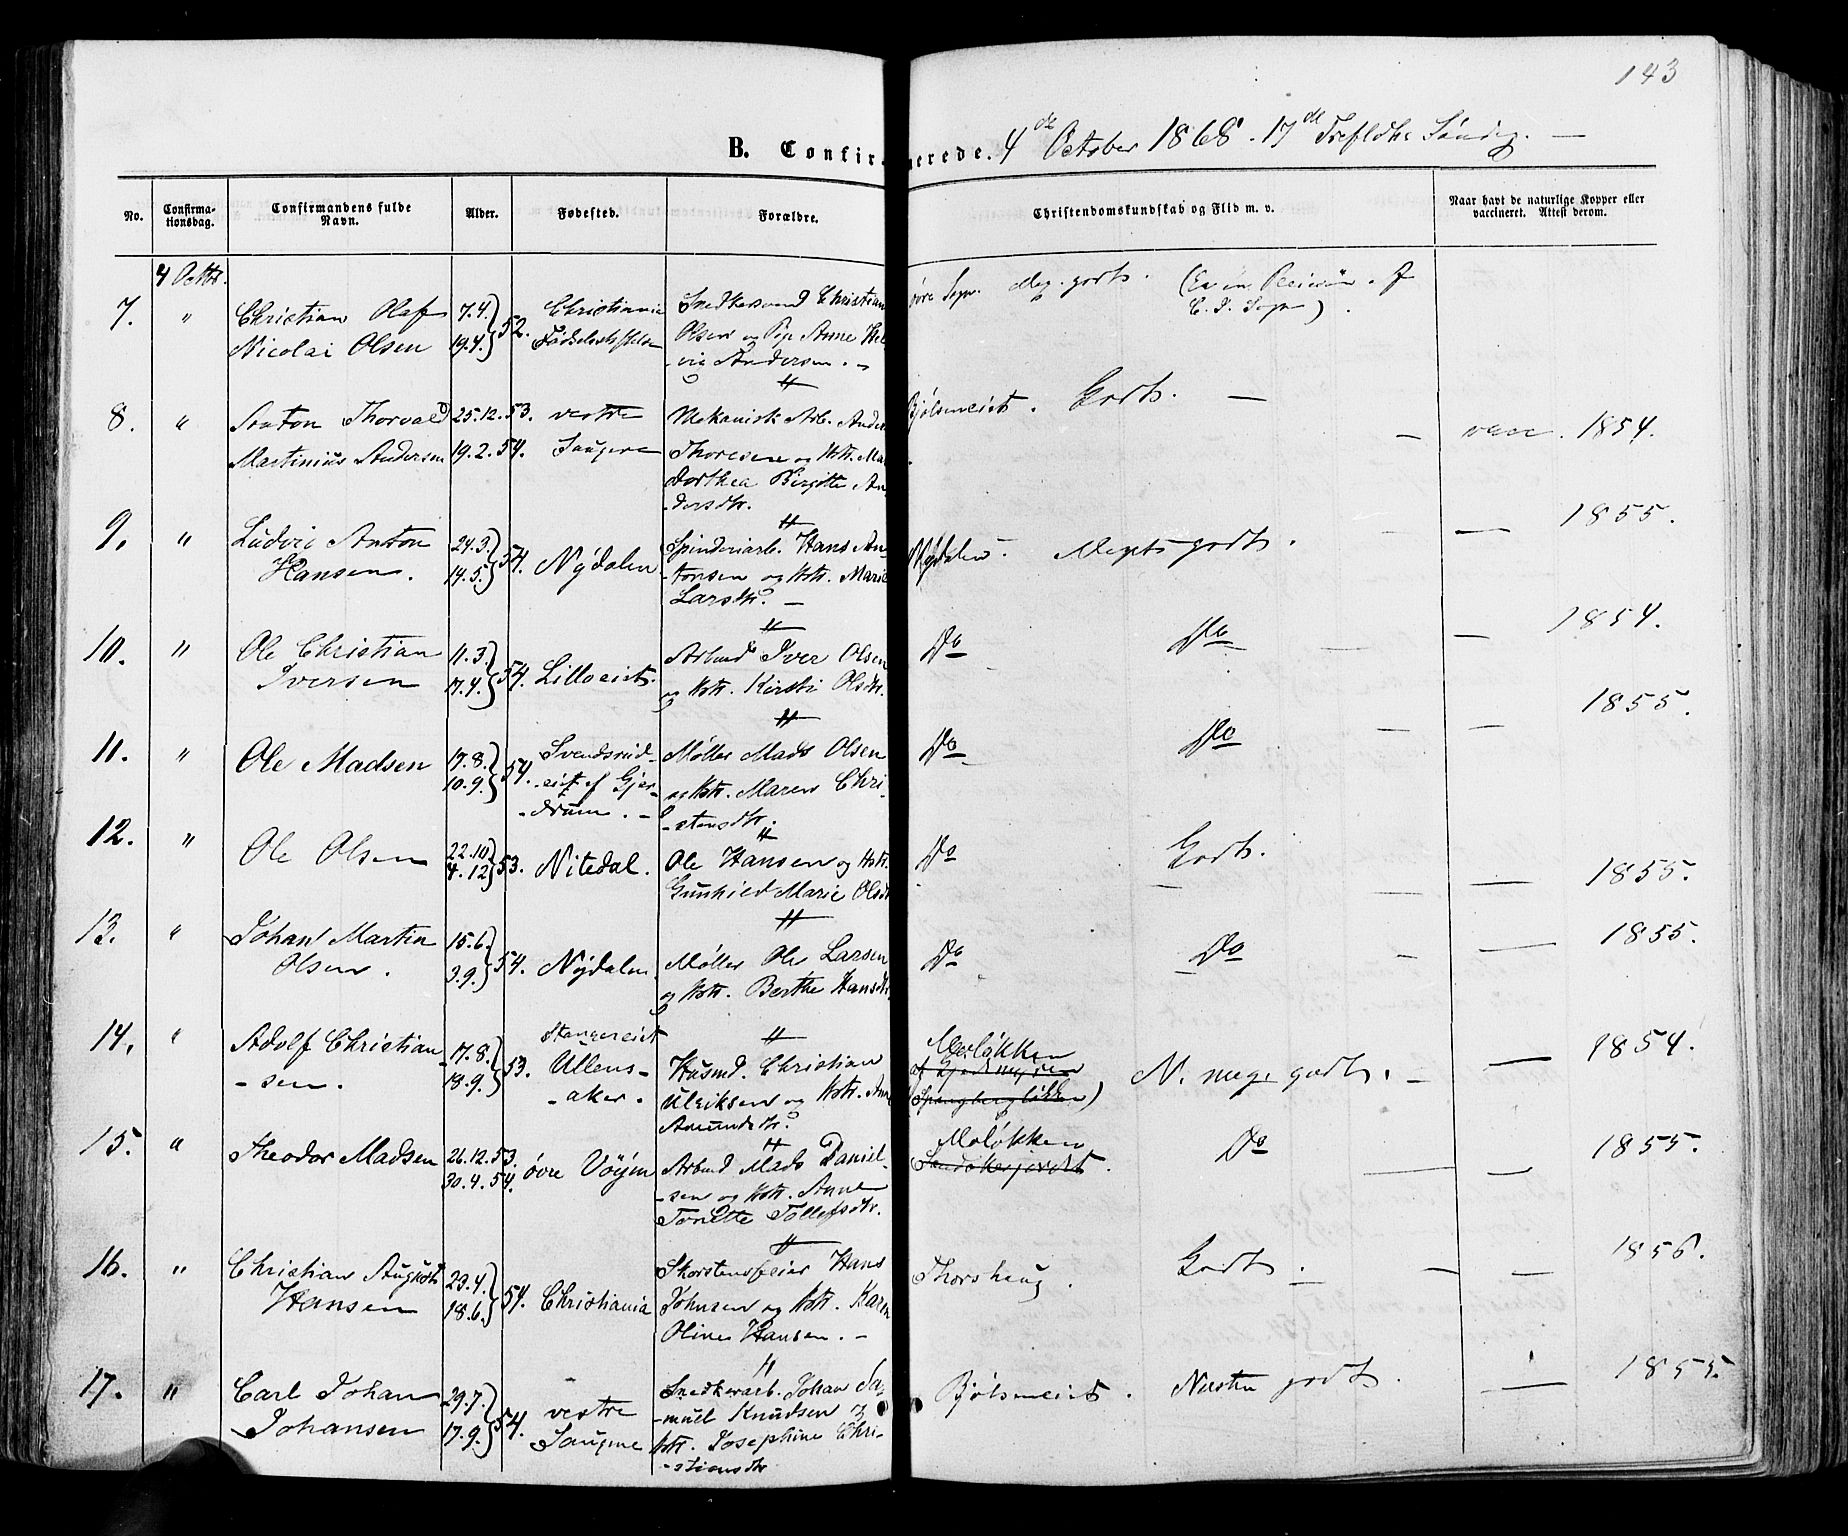 143
B. Confirmerede. 4de October 1868. 17de
No.
Confirma-
tionsdag.
Confirmandens fulde
Navn.
Alder.
Fødested.
Forældre.
Christendomskundskab og Flid m. v.
Naar havt de naturlige Kopper eller
vaccineret. Attest derom.
7. 4 Octbr. "
Christian Olaf
Nicolai Olsen
7.4.
19.4. } 52.
Christiania
Fødselsstiftelse
Snedkersvend Christian
Olsen og Pige Anne Hel-
-vig Andersen. -
Meg. godt.
8. "
Anton Thorvald
Martinius Andersen
25.12.53.
19.2.54.
vestre
Mekanisk Arb. Anders
Thoresen og Kstr.
Dorthea Birgitte An-
-dersdtr.
Bjølseneiet.
Godt. -
vacc. 1854.
9. "
Ludvig Anton
Hansen.
24.3.
14.5. } 54.
Nydalen
Spinderiarb. Hans An-
-tonsen og Kstr. Marie
Larsdtr. -
Nydalen.
Meget godt.
1855.
10. "
Ole Christian
Iversen
11.3.
17.4. } 54.
Lilloeiet.
Arbmd Iver Olsen
og Kstr. Kirsti Olsdtr.
Do
Do
1854.
11. "
Ole Madsen
17.8.
10.9. } 54.
Svendsrud-
-eiet af Gjer-
-drum. -
Møller Mads Olsen
og Kstr. Maren Chri-
-stensdtr.
Do
Do
1855.
12. "
Ole Olsen
22.10
4.12 } 53.
Nitedal.
Ole Hansen og Kstr.
Gunhild Marie Olsdtr
Do
Godt.
1855.
13. "
Johan Martin
Olsen.
15.6.
3.9. } 54.
Nydalen.
Møller Ole Larsen
og Kstr. Berthe Hansdtr
Do
Do
1855.
14. "
Adolf Christian
-sen.
17.8.
18.9. } 53.
Ullens-
-aker.
Husmd. Christian
Ulriksen og Kstr. Anne
Amundsdtr.
N. meget godt. -
1854.
15. "
Theodor Madsen
26.12.53.
30.4.54.
øvre Vøyen
Arbmd Mads Daniel-
-sen og Kstr. Anne
Tonette Tollefsdtr.
Do
1855.
16. "
Christian August
Hansen
23.4.
18.6. } 54.
Christiania
Skorstensfeier Hans
Johnsen og Kstr. Karen
Oline Hansen. -
Thorshaug.
Godt.
1856.
17. "
Carl Johan
Johansen
29.7.
17.9. } 54.
vestre
Snedkerarb. Johan Sa-
-muel Knudsen og
Kstr. Josephine Chri-
-stiansdtr
Bjølseneiet.
Næsten godt.
1855.